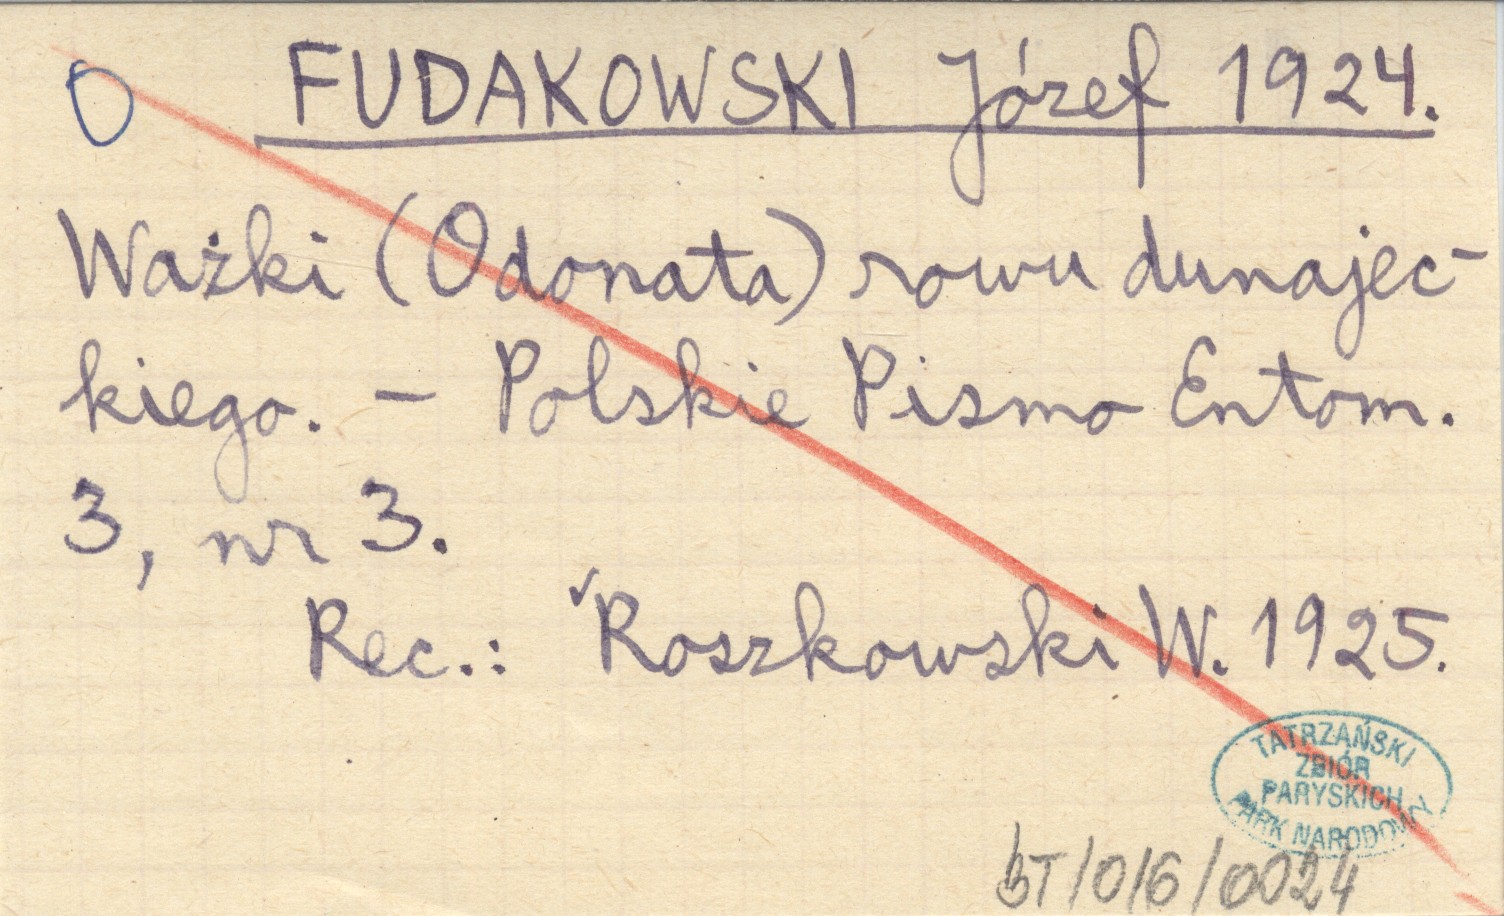 O FUDAKOWSKI Józef 1924.
Ważki (Odonata) rowu dunajec-
kiego. – Polskie Pismo Entom.
3, nr 3.
Rec.: ✓Roszkowski W. 1925.
TATRZAŃSKI
ZBIÓR
PARYSKICH
PARK NARODOWY
BT/016/0024